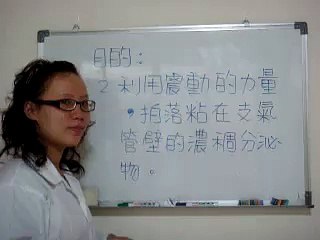 目的：
2 利用震動的力量
•拍落粘在支氣
管壁的濃稠分泌
物。